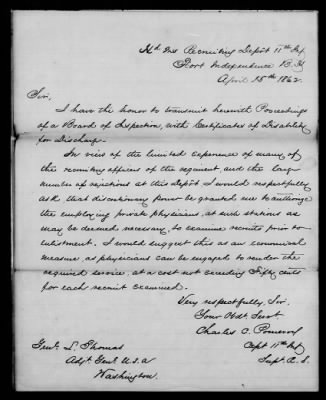 Hd Qrs Recruiting Depôt 11th Inf.
Fort Independence B. H.
April 15th 1862.
Sir,
I have the honor to transmit herewith Proceedings
of a Board of Inspection, with Certificates of Disability
for Discharge.
In view of the limited experience of many of
the recruiting officers of the regiment, and the large
number of rejections at this Depôt I would respectfully
ask that discretionary power be granted me to authorize
the employing private physicians, at such stations as
may be deemed necessary, to examine recruits prior to en-
listment. I would suggest this as an economical
measure, as physicians can be engaged to render the
required service, at a cost not exceeding fifty cents
for each recruit examined.
Very respectfully, Sir,
Your Obdt. Servt.
Charles C. Pomeroy
Genl. L. Thomas Capt 11th Inf
Adjt. Genl. U.S.A Supt. R. S.
Washington.